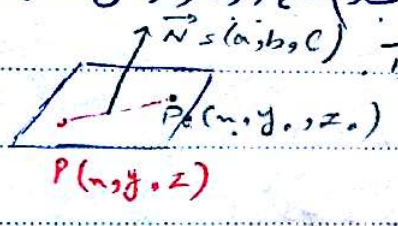 N = (a, b, c)
P₀(x₀, y₀, z₀)
P(x, y, z)